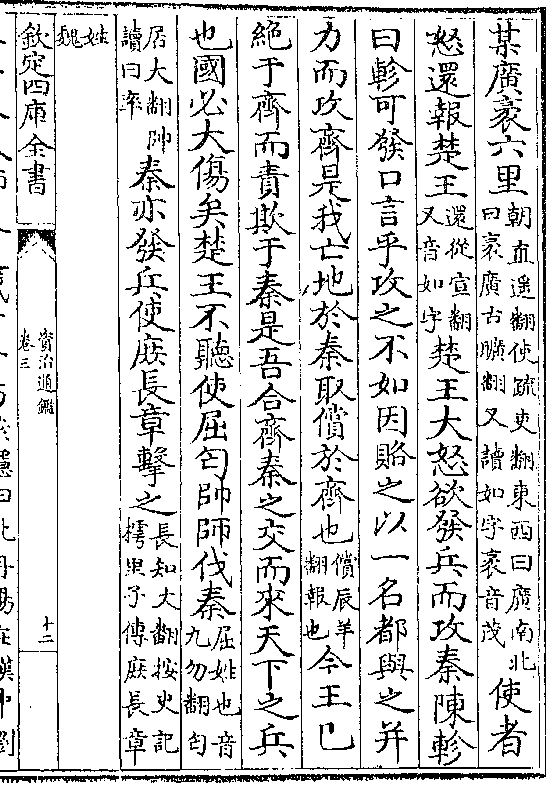 某廣袤六里朝直遥翻使疏吏翻東西曰廣南北曰袤廣古曠翻又讀如字袤音茂使者
怒還報楚王還從宣翻又音如字楚王大怒欲發兵而攻秦陳軫
曰軫可發口言乎攻之不如因賂之以一名都與之并
力而攻齊是我亡地於秦取償於齊也償辰羊翻報也今王已
絶于齊而責欺于秦是吾合齊秦之交而來天下之兵
也國必大傷矣楚王不聽使屈匄帥師伐秦屈姓也音九勿翻匄
居大翻帥讀曰率秦亦發兵使庶長章擊之長知大翻按史記樗里子傳庶長章
姓魏
欽定四庫全書
資治通鑑
卷三
十二